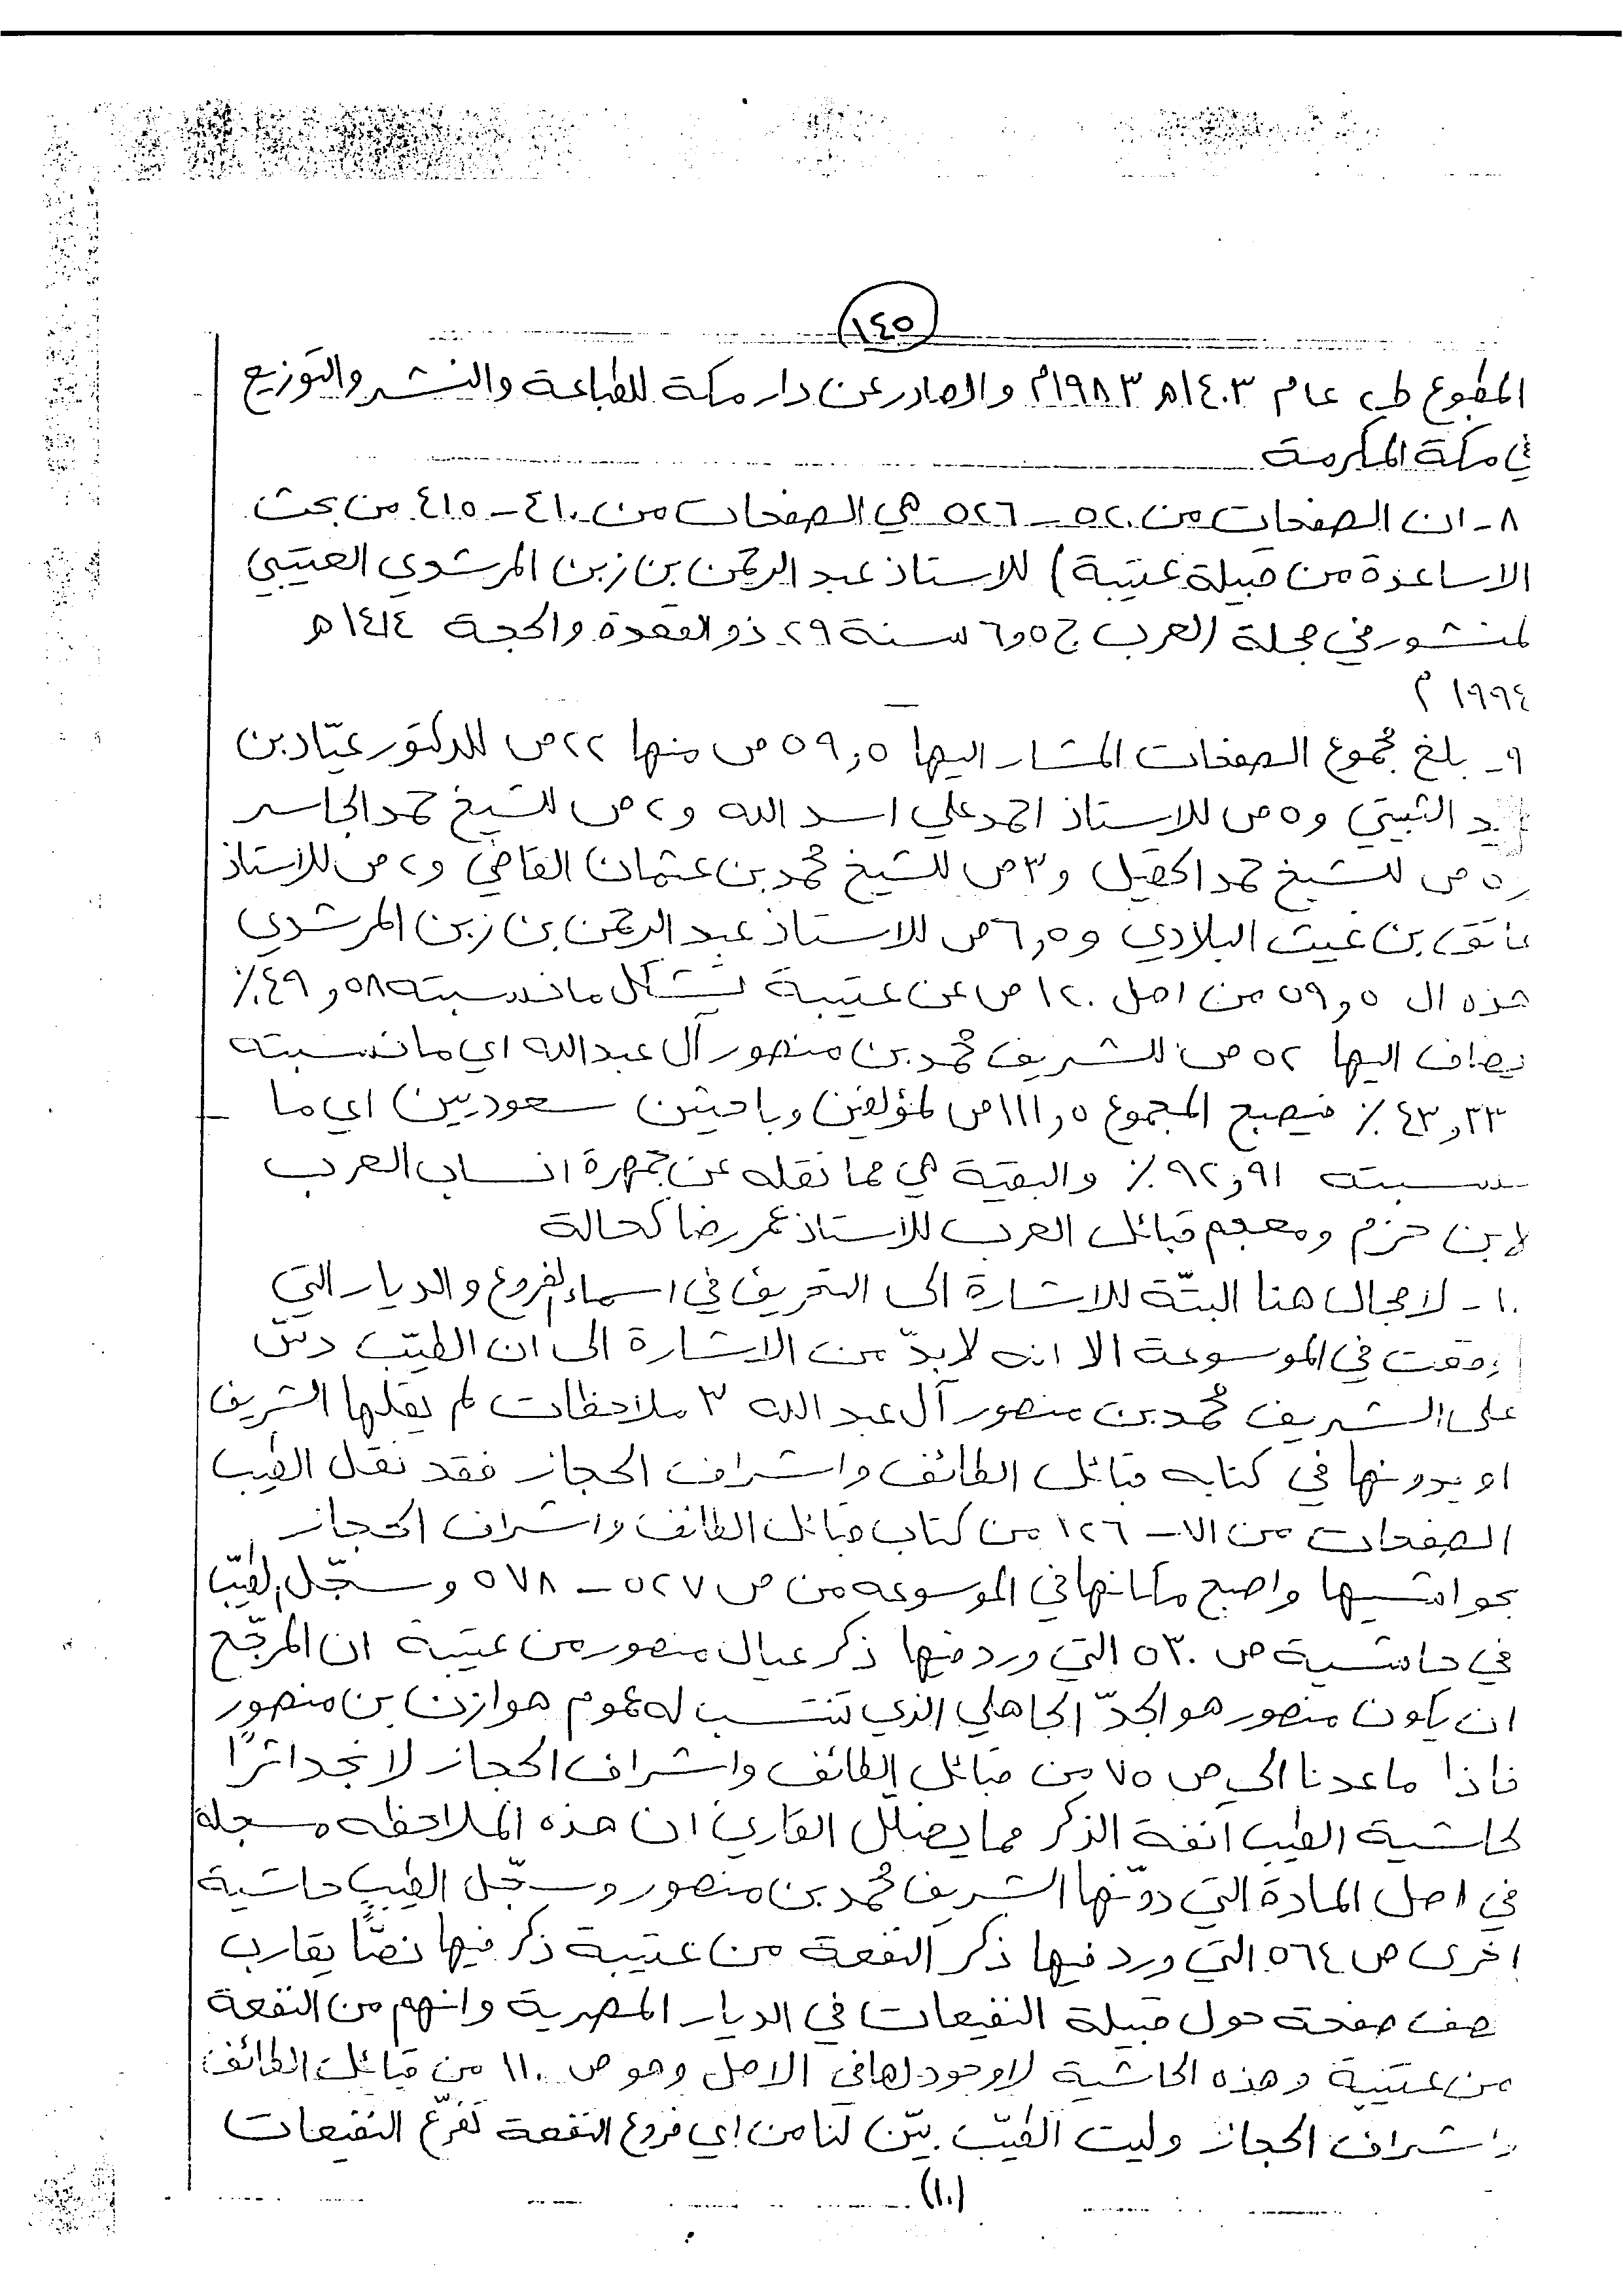 ١٤٥
المطبوع ط٢ عام ١٤٠٣هـ ١٩٨٣م والصادر عن دار مكة للطباعة والنشر والتوزيع
في مكة المكرمة
٨ـ ان الصفحات من ٥٢٠ – ٥٢٦ هي الصفحات من ٤١٠ – ٤١٥ من بحث
الاساعدة من قبيلة عتيبة) للاستاذ عبد الرحمن بن زبن المرشدي العتيبي
لمنشور في مجلة (العرب ج ٥ و٦ سنة ٢٩ ذو القعدة والحجة ١٤١٤هـ
١٩٩٤م
٩ـ بلغ مجموع الصفحات المشار اليها ٥٩,٥ ص منها ٢٢ ص للدكتور عيّاد بن
يد الثبيتي و٥ ص للاستاذ احمد علي اسد الله و٢ ص للشيخ حمد الجاسر
ر٥ ص للشيخ حمد الحقيل و٣ ص للشيخ محمد بن عثمان القاضي و٢ ص للاستاذ
عاتق بن غيث البلادي و٦,٥ ص للاستاذ عبد الرحمن بن زبن المرشدي
هذه ال ٥٩,٥ من اصل ١٢٠ ص عن عتيبة تشكل ما نسبته ٤٩,٥٨٪
يضاف اليها ٥٢ ص للشريف محمد بن منصور آل عبدالله اي ما نسبته
٤٣,٣٣٪ فيصبح المجموع ١١١,٥ ص لمؤلفين وباحثين سعوديين اي ما
نسبته ٩٢,٩١٪ والبقية هي مما نقله عن جمهرة انساب العرب
لابن حزم ومعجم قبائل العرب للاستاذ عمر رضا كحالة
١٠ـ لا مجال هنا البتّة للاشارة الى التحريف في اسماء الفروع والديار التي
وقعت في الموسوعة الا انه لابدّ من الاشارة الى ان الطيّب دسّ
على الشريف محمد بن منصور آل عبد الله ٣ ملاحظات لم يقلها الشريف
او يدونها في كتابه قبائل الطائف واشراف الحجاز فقد نقل الطيب
الصفحات من ٧١ – ١٢٦ من كتاب قبائل الطائف واشراف الحجاز
بحواشيها واصبح مكانها في الموسوعه من ص ٥٢٧ – ٥٧٨ وسجّل الطيّب
في حاشية ص ٥٣٠ التي ورد فيها ذكر عيال منصور من عتيبة ان المرجّح
ان يكون منصور هو الجدّ الجاهلي الذي تنتسب له عموم هوازن بن منصور
فاذا ما عدنا الى ص ٧٥ من قبائل الطائف واشراف الحجاز لا نجد اثرًا
لحاشية الطيب آنفة الذكر مما يضلل القارئ ان هذه الملاحظه مسجلة
في اصل المادة التي دوّنها الشريف محمد بن منصور وسجّل الطيب حاشية
اخرى ص ٥٦٤ التي ورد فيها ذكر النفعة من عتيبة ذكر فيها نصًّا يقارب
نصف صفحة حول قبيلة النفيعات في الديار المصرية وانهم من النفعة
من عتيبة وهذه الحاشية لاوجود لها في الاصل وهو ص ١١٠ من قبائل الطائف
واشراف الحجاز وليت الطيّب بيّن لنا من اي فروع النفعة تفرّع النفيعات
(١٠)